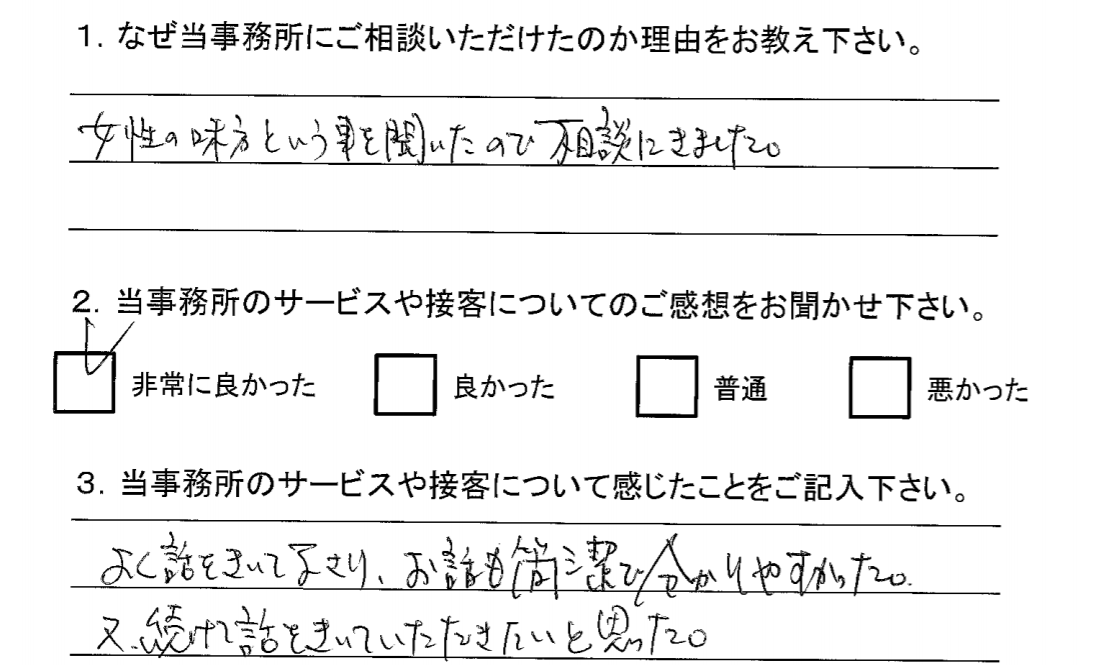 1. なぜ当事務所にご相談いただけたのか理由をお教え下さい。
女性の味方という事を聞いたので相談にきました。
2. 当事務所のサービスや接客についてのご感想をお聞かせ下さい。
非常に良かった 良かった 普通 悪かった
3. 当事務所のサービスや接客について感じたことをご記入下さい。
よく話をきいて下さり、お話も簡潔で分かりやすかった。
又、続けて話をきいていただきたいと思った。